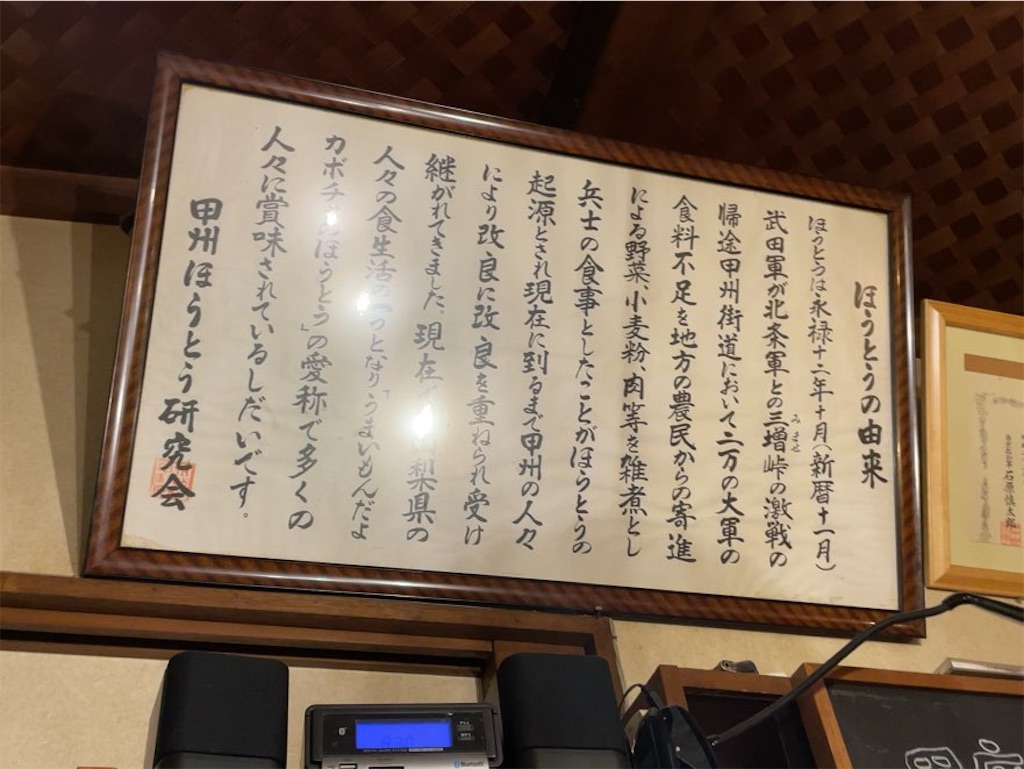 ほうとうの由来
ほうとうは永禄十二年十月(新暦十一月)
武田軍が北条軍との三増峠の激戦の
みませ
帰途甲州街道において二万の大軍の
食料不足を地方の農民からの寄進
による野菜、小麦粉、肉等を雑煮とし
兵士の食事としたことがほうとうの
起源とされ現在に到るまで甲州の人々
により改良に改良を重ねられ受け
継がれてきました。現在 梨県の
人々の食生活の一つとなり「うまいもんだよ
カボチャのほうとう」の愛称で多くの
人々に賞味されているしだいです。
甲州ほうとう研究会
石原慎太郎
Bluetooth